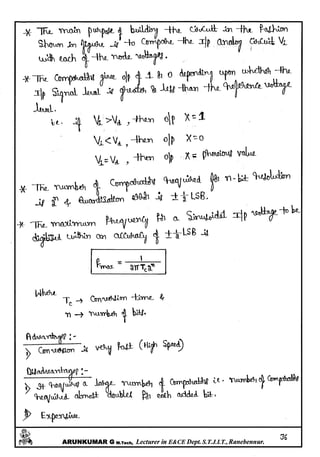 * The main purpose of building the circuit in the fashion
shown in figure is to compare the i/p analog circuit V₂
with each of the node voltages.
* The Comparator gives o/p of 1 & 0 depending upon whether the
i/p Signal level is greater & less than the reference voltage
level.
i.e. if V₂ > Vd , then o/p X=1
V₂ < Vd , then o/p X=0
V₂ = Vd , then o/p X= previous value
* The number of Comparators required for n-bit resolution
is 2ⁿ & Quantisation is ± ½ LSB.
* The maximum frequency for a Sinusoidal i/p voltage to be
digitised within an accuracy of ± ½ LSB is
fmax = 1 / 2π Tc 2ⁿ
Where
Tc → Conversion time &
n → number of bits.
Advantages :-
1) Conversion is very fast (High Speed)
Disadvantages :-
1) It requires a large number of Comparators i.e. number of Comparators
required almost doubles for each added bit.
2) Expensive.
ARUNKUMAR G M.Tech, Lecturer in E&CE Dept. S.T.J.I.T., Ranebennur.
36